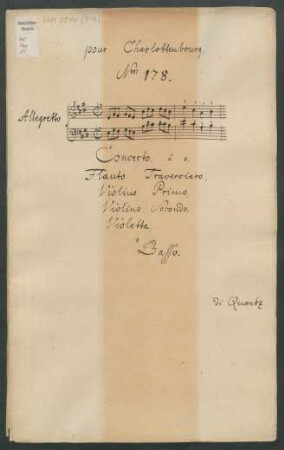 pour Charlottenbourg.
Nro 178.
Allegretto
Concerto, à 5.
Flauto Traversiero,
Violino Primo,
Violino Secondo,
Violetta,
e
Basso.
di Quantz